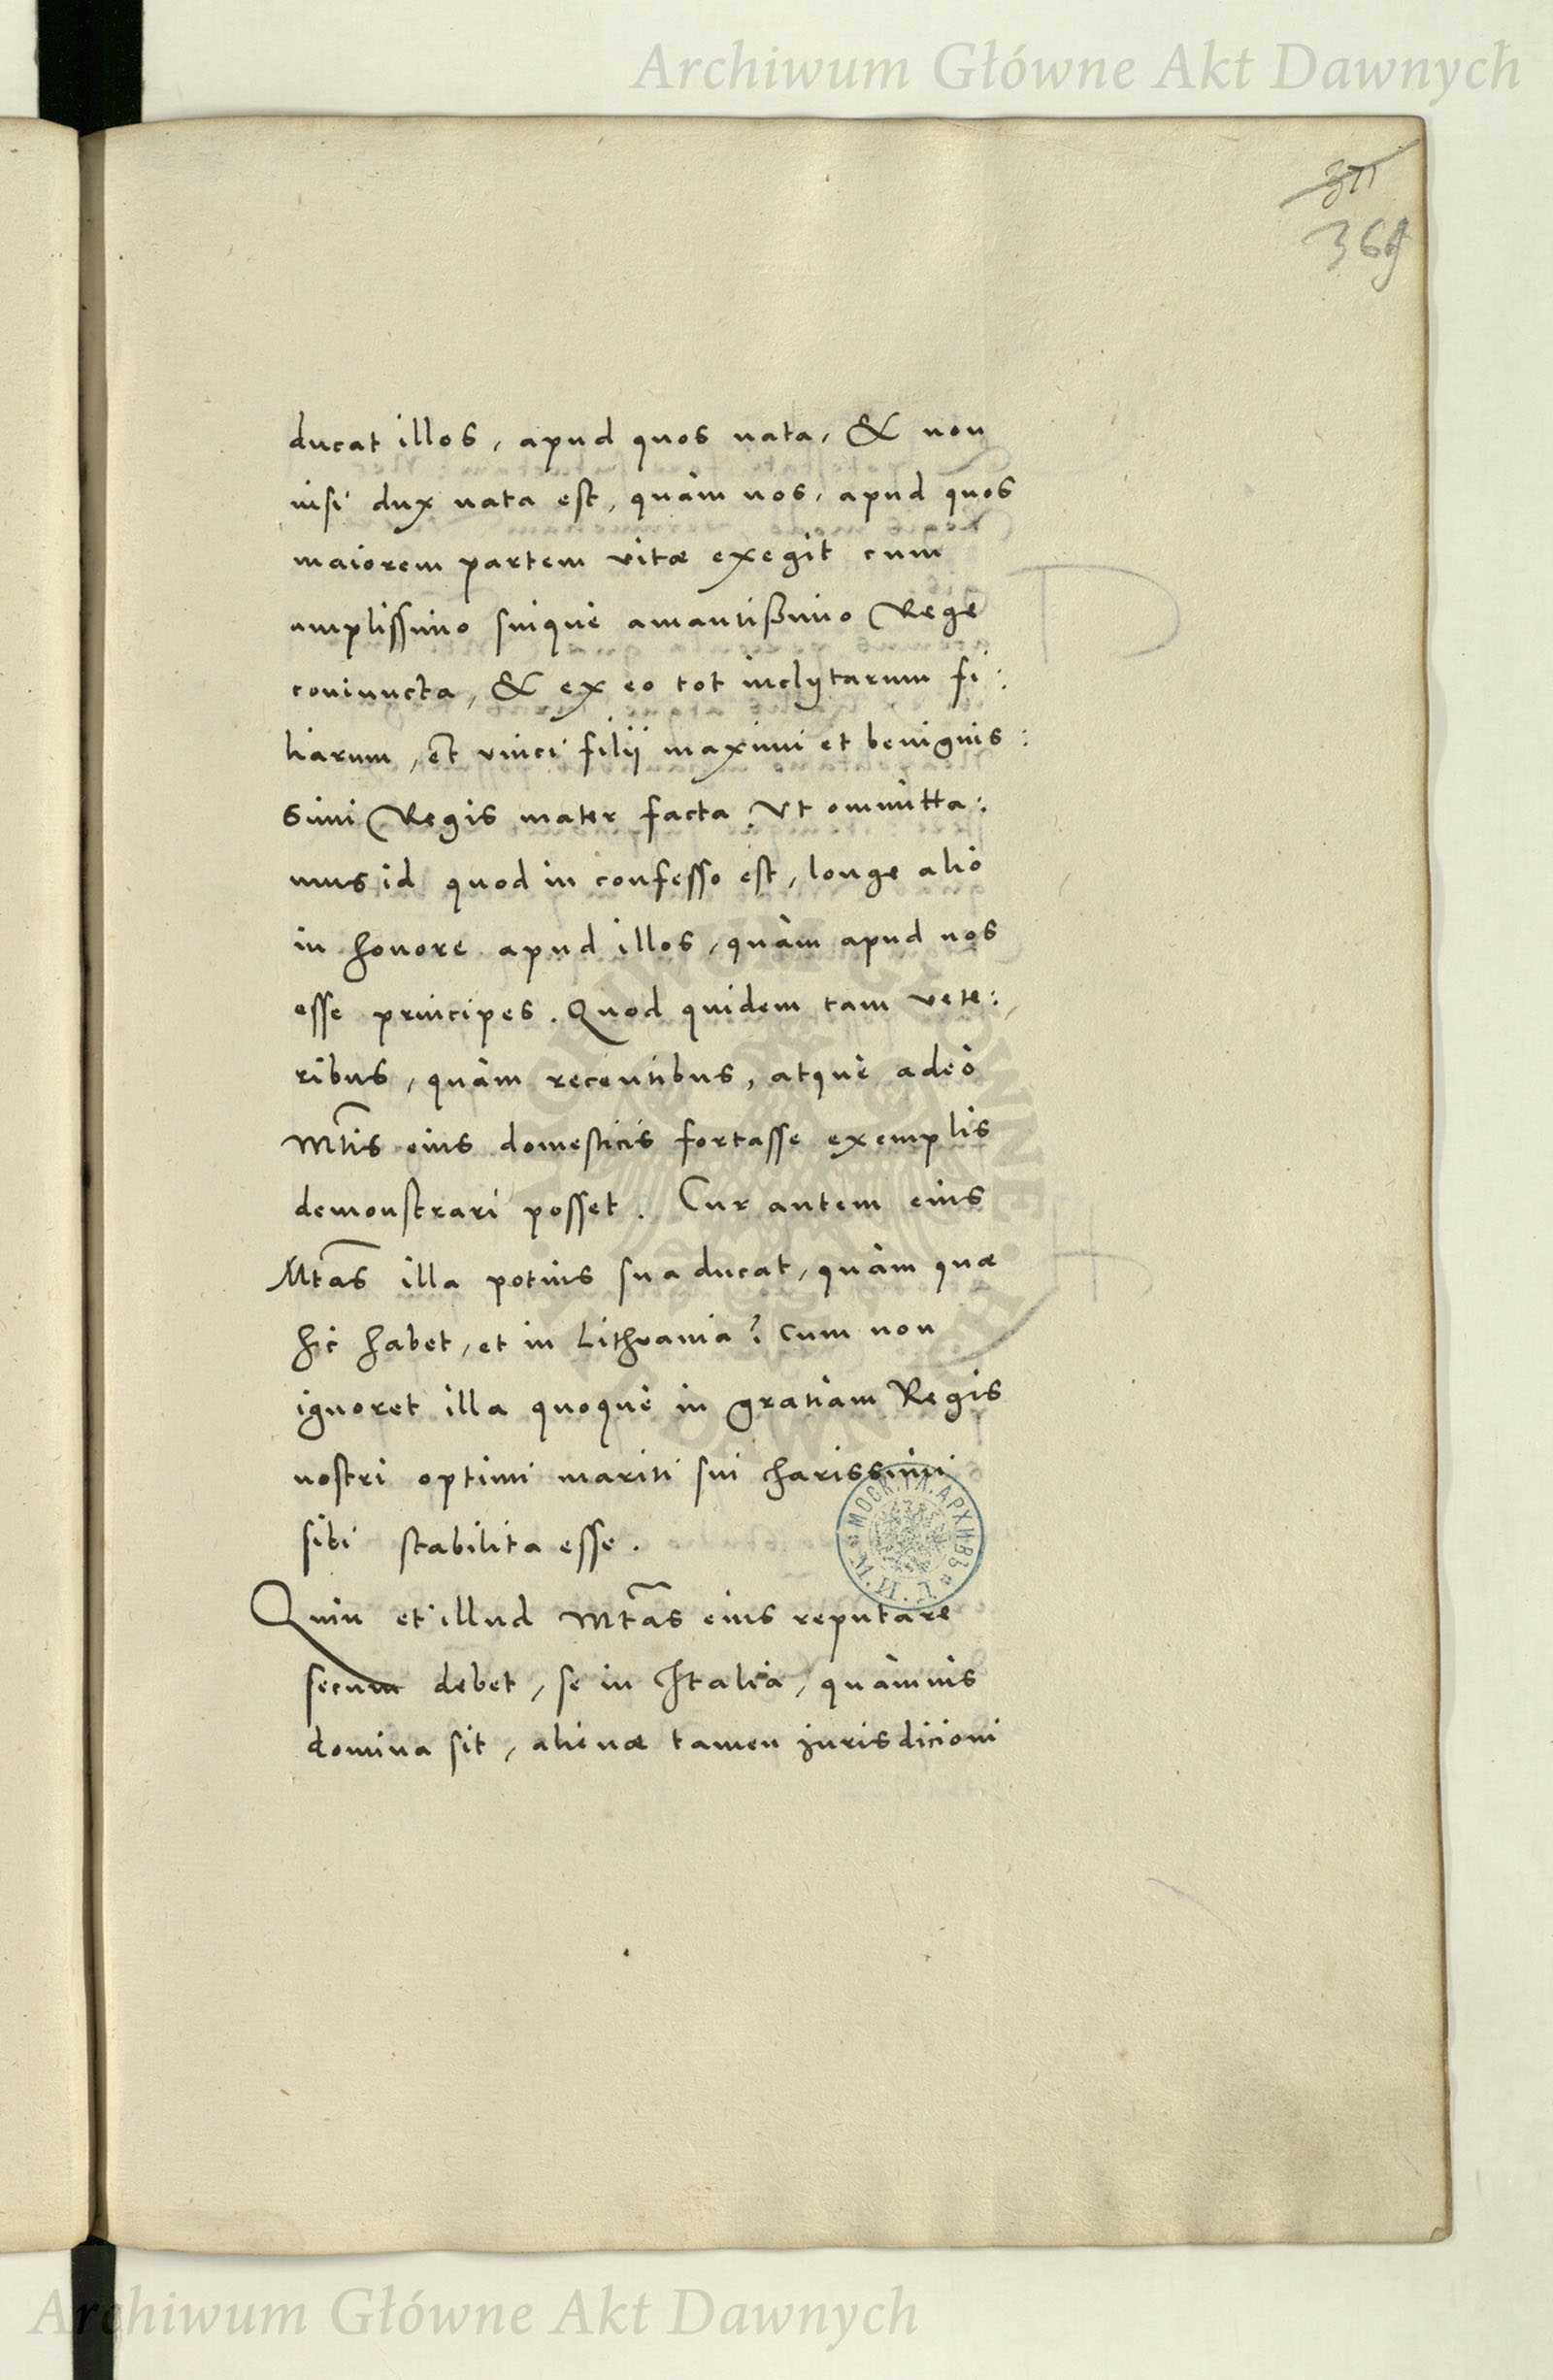 Archiwum Główne Akt Dawnych
371
369
ducat illos, apud quos nata, & non
nisi dux nata est, quàm nos, apud quos
maiorem partem vitæ exegit cum
amplissimo suique amantißimo Rege
coniuncta, & ex eo tot inclytarum fi:
liarum, et unici filij maximi et benignis:
simi Regis mater facta. Vt ommitta:
mus id quod in confesso est, longe alio
in honore apud illos, quàm apud nos
esse principes. Quod quidem tam vete:
ribus, quàm recentibus, atque adeò
Mtis eius domesticis fortasse exemplis
demonstrari posset. Cur autem eius
Mtas illa potius sua ducat, quàm quæ
hic habet, et in Lithvania? cum non
ignoret illa quoque in gratiam Regis
nostri optimi mariti sui charissimi
sibi stabilita esse.
Quin et illud Mtas eius reputare
secum debet, se in Italia, quàmuis
domina sit, alienæ tamen jurisdicioni
МОСК. ГЛ. АРХИВЪ
М. И. Д.
Archiwum Główne Akt Dawnych